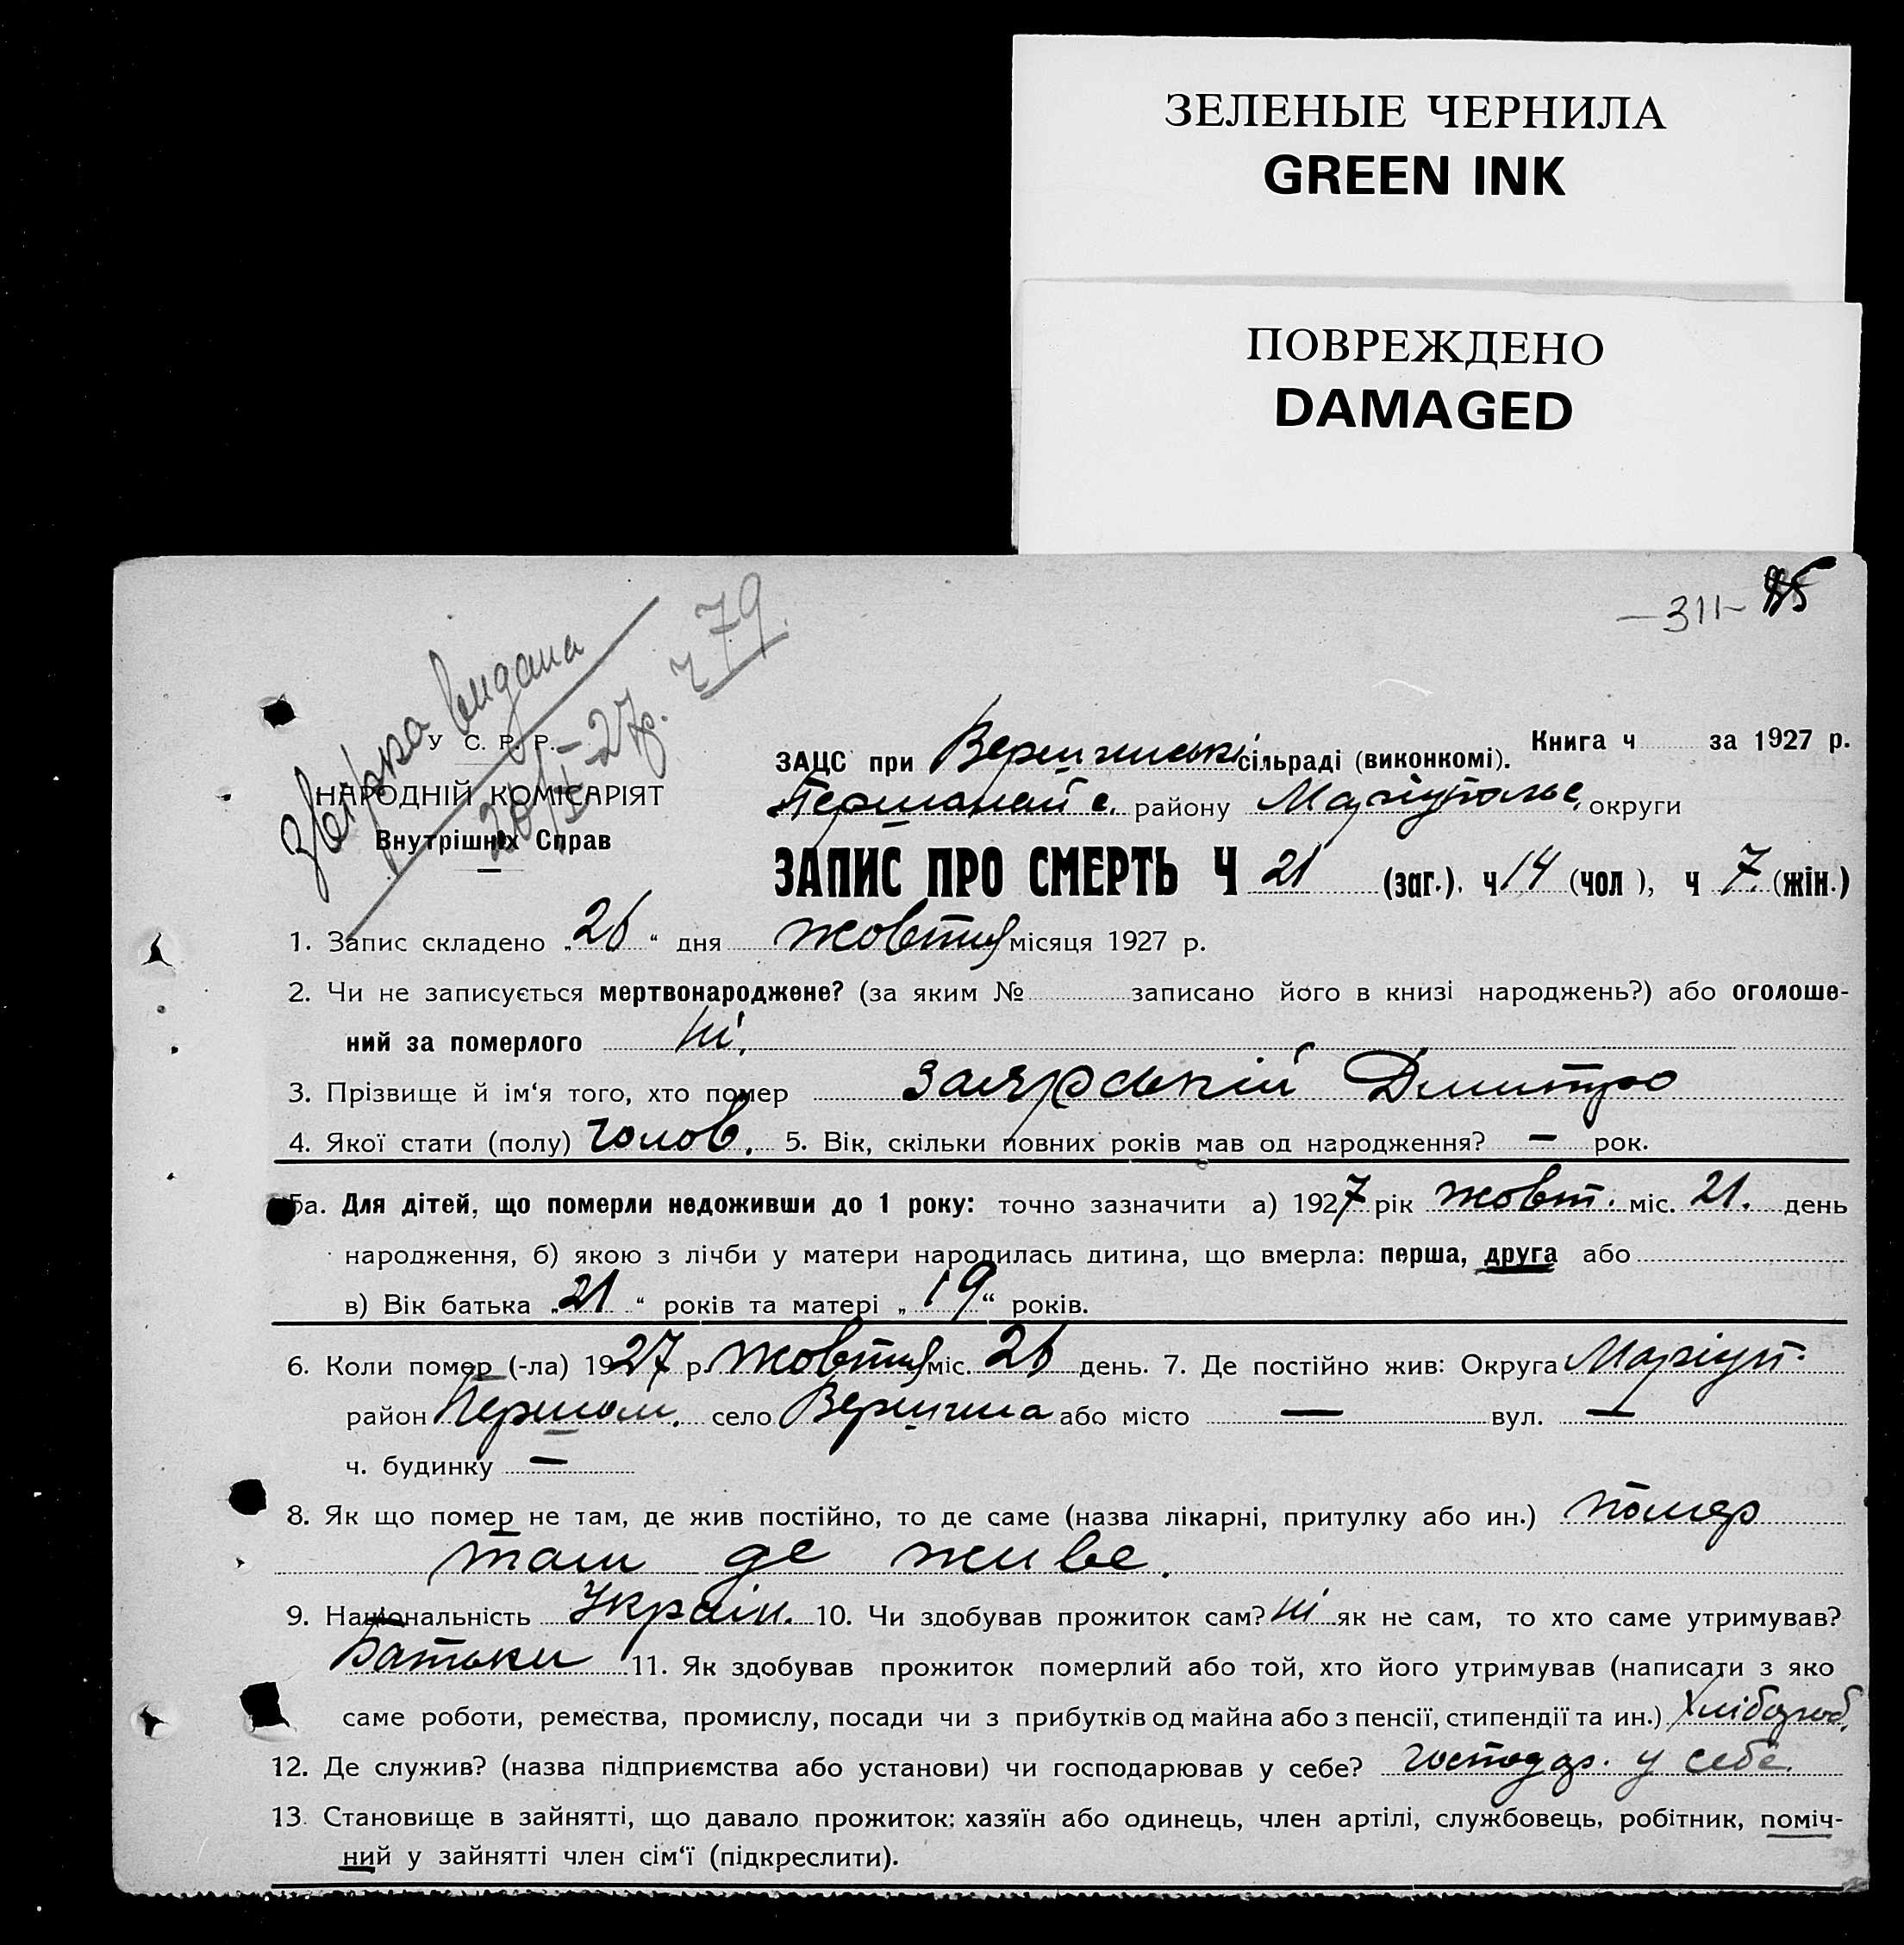 ЗЕЛЕНЫЕ ЧЕРНИЛА
GREEN INK
ПОВРЕЖДЕНО
DAMAGED
—311—
ч 79.
видана
27р.
У С. Р. Р.
НАРОДНІЙ КОМІСАРІЯТ
Внутрішніх Справ
Книга ч за 1927 р.
ЗАЦС при Вершинській сільраді (виконкомі).
району Маріупольс. округи
ЗАПИС ПРО СМЕРТЬ Ч 21 (заг.). ч 14 (чол), ч 7. (жін.)
1. Запис складено „26“ дня жовтня місяця 1927 р.
2. Чи не записується мертвонароджене? (за яким № записано його в книзі народжень?) або оголоше-
ний за померлого ні.
3. Прізвище й ім‘я того, хто помер Заярський Дмитро
4. Якої стати (полу) чолов. 5. Вік, скільки повних років мав од народження? — рок.
5а. Для дітей, що померли недоживши до 1 року: точно зазначити а) 1927 рік жовт. міс. 21. день
народження, б) якою з лічби у матери народилась дитина, що вмерла: перша, друга або
в) Вік батька „21“ років та матері „19“ років.
6. Коли помер (-ла) 1927 р. жовтня міс. 26 день. 7. Де постійно жив: Округа Маріуп.
район Першом. село Вершина або місто — вул. —
ч. будинку —
8. Як що помер не там, де жив постійно, то де саме (назва лікарні, притулку або ин.) помер
там де живе.
9. Національність Україн. 10. Чи здобував прожиток сам? ні як не сам, то хто саме утримував?
Батьки 11. Як здобував прожиток померлий або той, хто його утримував (написати з яко
саме роботи, ремества, промислу, посади чи з прибутків од майна або з пенсії, стипендії та ин.) Хлібороб.
12. Де служив? (назва підприємства або установи) чи господарював у себе? господар. у себе.
13. Становище в зайнятті, що давало прожиток; хазяїн або одинець, член артілі, службовець, робітник, поміч-
ний у зайнятті член сім‘ї (підкреслити).